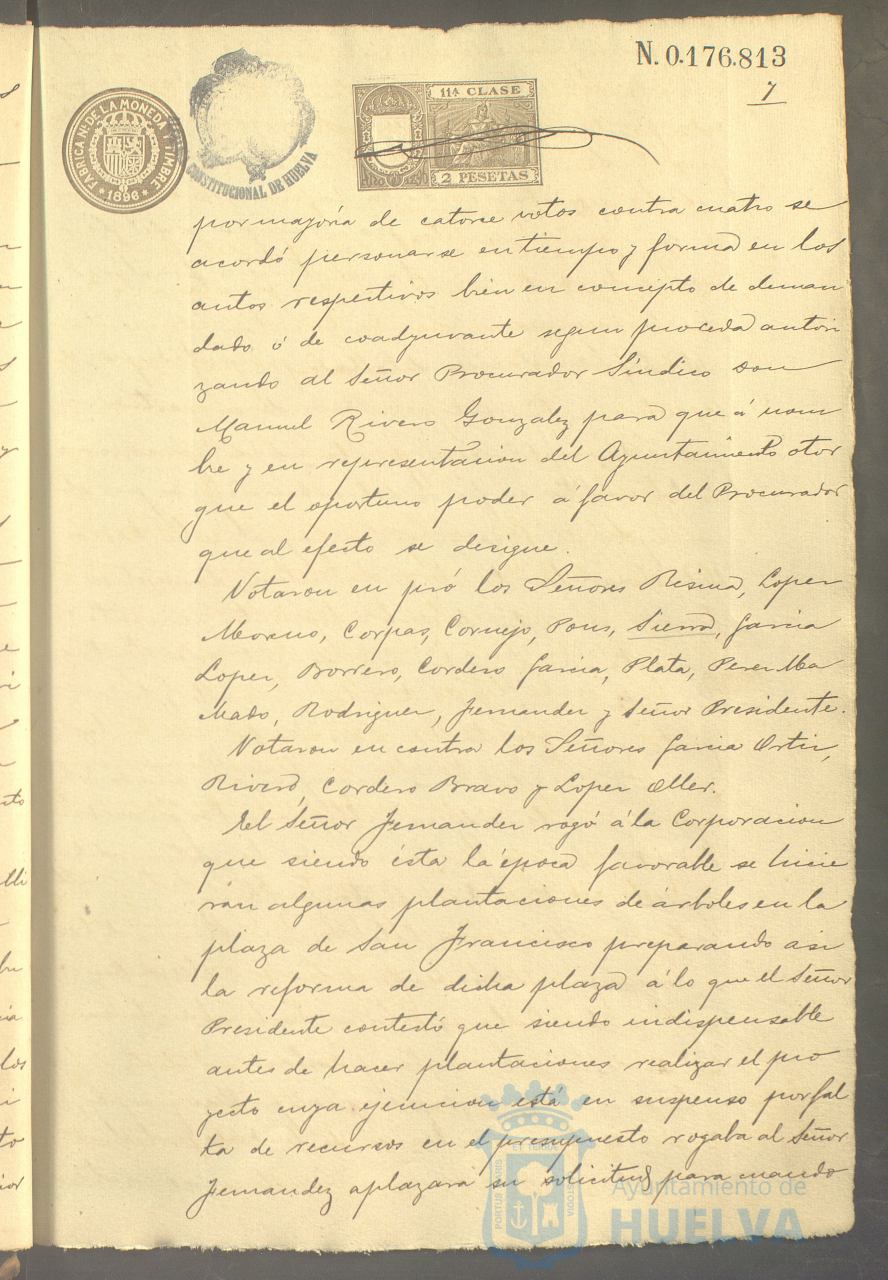 N. 0.176.813
7
FABRICA Nal DE LA MONEDA Y TIMBRE
1896
CONSTITUCIONAL DE HUELVA
11ª CLASE
2 PESETAS
por mayoría de catorse votos contra cuatro se
acordó personarse en tiempo y forma en los
autos respectivos bien en concepto de deman
dado ó de coadyuvante segun proceda autori
zando al Señor Procurador Síndico don
Manuel Rivero Gonzalez para que á nom
bre y en representacion del Ayuntamiento otor
gue el oportuno poder á favor del Procurador
que al efecto se designe.
Votaron en pró los Señores Lopez
Moreno, Corpas, Cornejo, Pons, Sierra, Garcia
Lopez, Borrero, Cordero Garcia, Plata, Perez Ma
chado, Rodriguez, Fernandez y Señor Presidente.
Votaron en contra los Señores Garcia Ortiz,
Rivero, Cordero Bravo y Lopez Oller.
El Señor Fernandez rogó á la Corporacion
que siendo ésta la época favorable se hicie
ran algunas plantaciones de árboles en la
plaza de San Francisco preparando asi
la reforma de dicha plaza á lo que el Señor
Presidente contestó que siendo indispensable
antes de hacer plantaciones realizar el pro
yecto cuya ejecucion está en suspenso por fal
ta de recursos en el presupuesto rogaba al Señor
Fernandez aplazara su solicitud para cuando
PORTUS MARIS
ET TERRAE
CUSTODIA
Ayuntamiento de
HUELVA